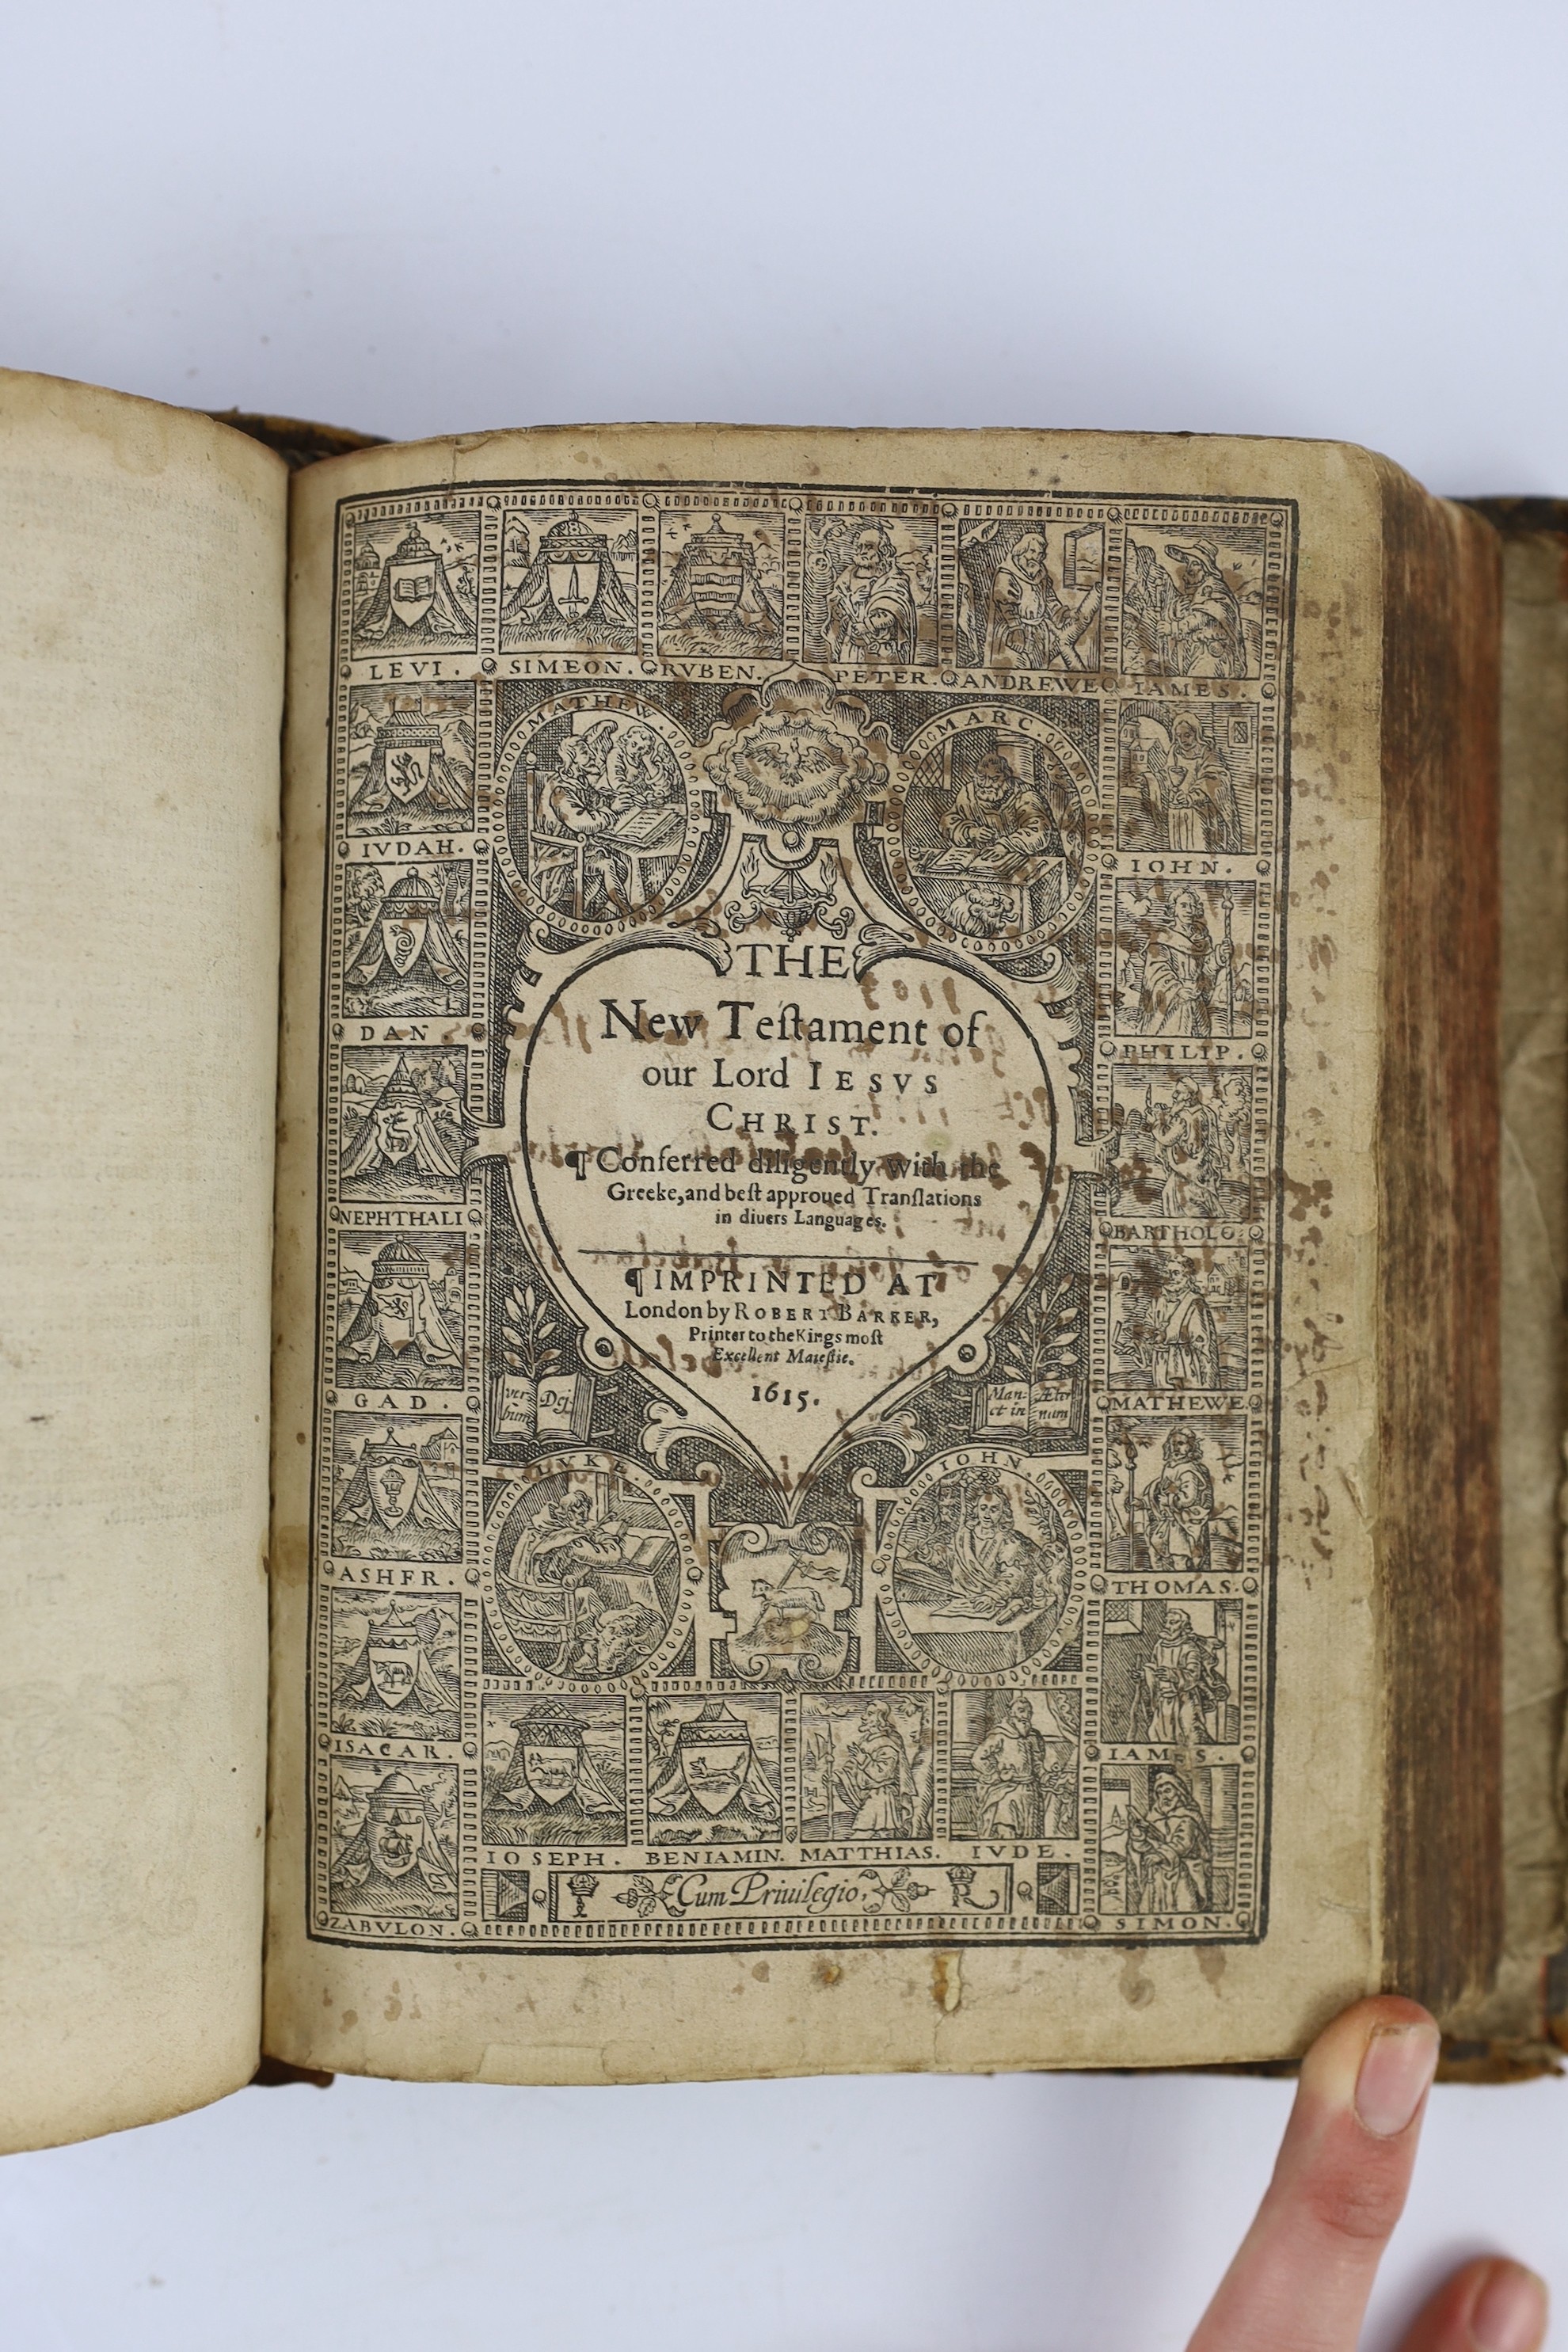 LEVI. SIMEON. RVBEN. PETER. ANDREWE IAMES.
MATHEW. MARC.
IVDAH. IOHN.
DAN. PHILIP.
NEPHTHALI BARTHOLO:
GAD. MATHEWE.
ASHER. THOMAS.
ISACAR. IAMES.
ZABVLON. SIMON.
THE
New Teſtament of
our Lord IESVS
CHRIST.
¶ Conferred diligently with the
Greeke, and beſt approued Tranſlations
in diuers Languages.
¶ IMPRINTED AT
London by ROBERT BARKER,
Printer to the Kings moſt
Excellent Maieſtie.
1615.
ver
bum Dej
Man-
et in Æter
num
LVKE. IOHN.
IOSEPH. BENIAMIN. MATTHIAS. IVDE.
I Cum Priuilegio, R